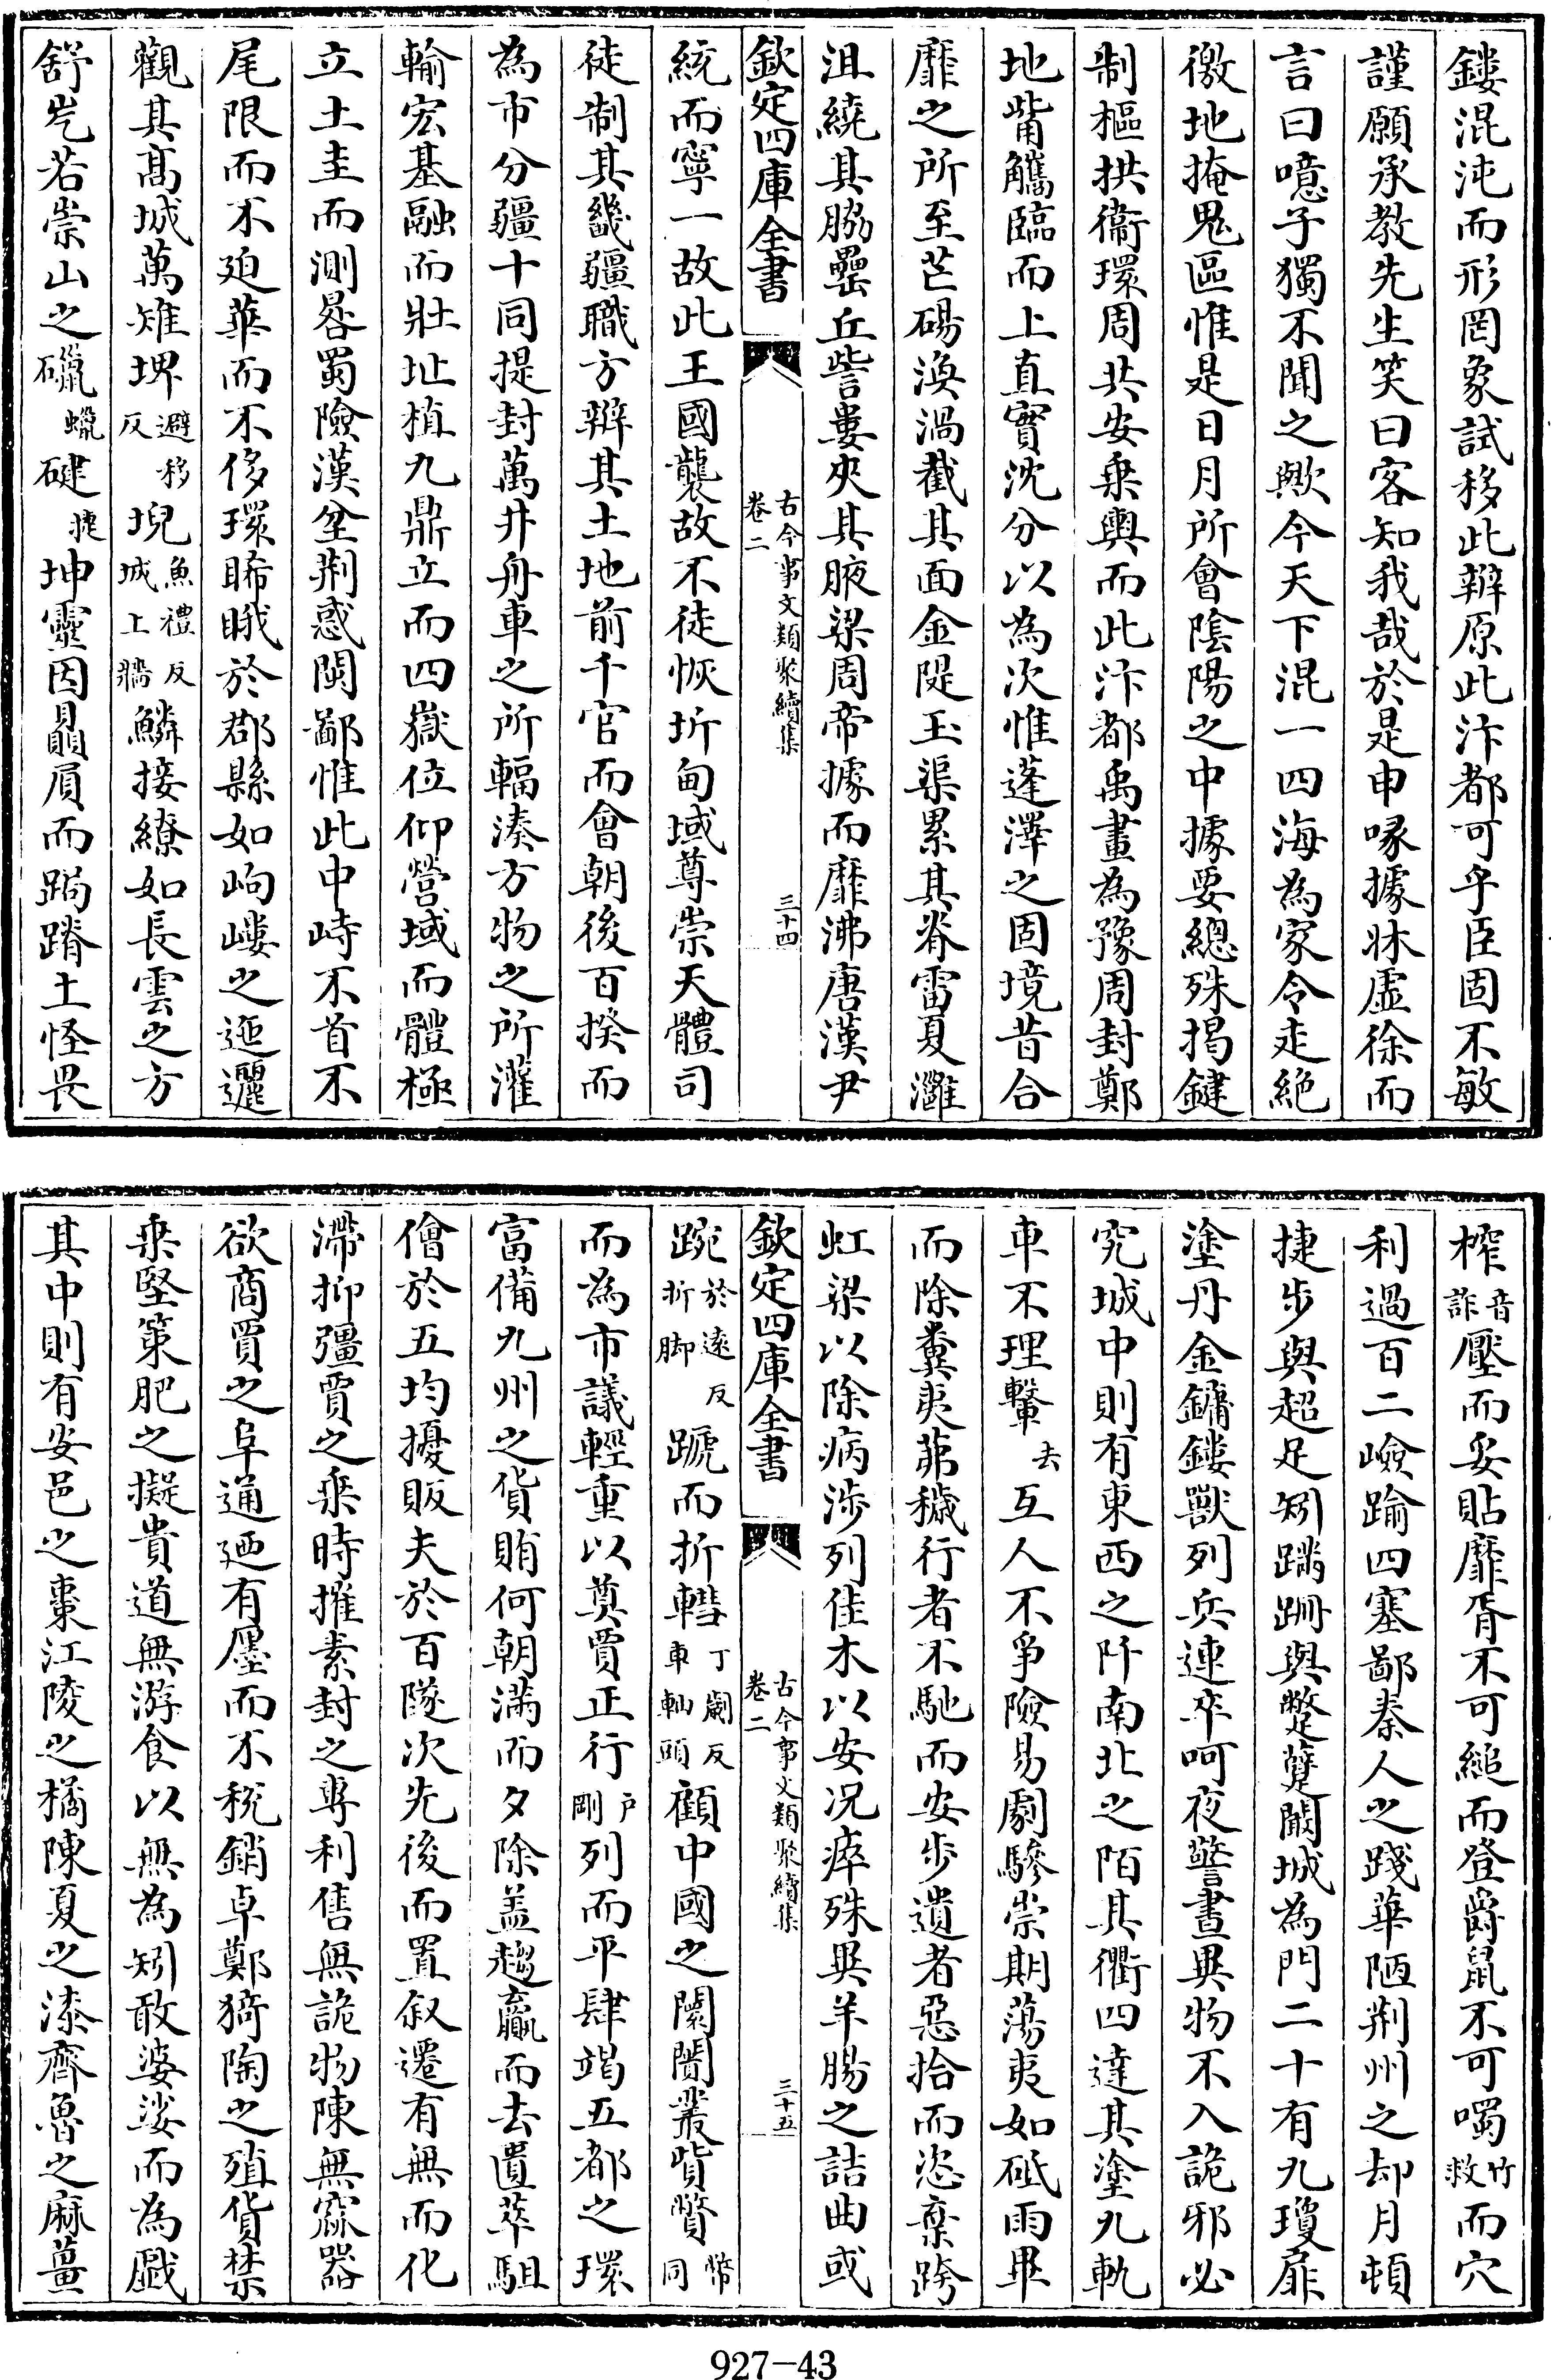 鏤混沌而形罔象試移此辯原此汴都可乎臣固不敏
謹願承教先生笑曰客知我哉於是申喙據牀虛徐而
言曰噫子獨不聞之歟今天下混一四海為家令走絶
徼地掩鬼區惟是日月所會隂陽之中據要總殊揭鍵
制樞拱衞環周共安乗輿而此汴都禹畫為豫周封鄭
地觜觿臨而上直實沈分以為次惟蓬澤之固境昔合
靡之所至芒碭渙渦截其面金隄玉渠累其脊雷夏灉
沮繞其脇壘丘訾婁夾其腋梁周帝據而靡沸唐漢尹
欽定四庫全書 古今事文類聚續集 卷二 三十四
統而寧一故此王國襲故不徒恢圻甸域尊崇天體司
徒制其畿疆職方辯其土地前千官而會朝後百揆而
為市分疆十同提封萬井舟車之所輻湊方物之所灌
輸宏基融而壯址植九鼎立而四嶽位仰營域而體極
立土圭而測晷蜀險漢坌荆惑閩鄙惟此中峙不首不
尾限而不廹華而不侈環睎睋於郡縣如岣嶁之迤邐
觀其髙城萬雉埤避移反堄魚禮反城上牆鱗接繚如長雲之方
舒屹若崇山之礧蠟硉捷坤靈因贔屓而跼蹐土怪畏
榨音詐壓而妥貼靡胥不可縋而登爵鼠不可噣竹救而穴
利過百二嶮踰四塞鄙秦人之踐華陋荆州之却月頓
捷步與超足矧蹣跚與蹩躠闞城為門二十有九瓊扉
塗丹金鏞鏤獸列兵連卒呵夜警晝異物不入詭邪必
究城中則有東西之阡南北之陌其衢四達其塗九軌
車不理轚去互人不爭險易劇驂崇期蕩夷如砥雨畢
而除糞夷茀穢行者不馳而安步遺者惡拾而恣棄跨
虹梁以除病渉列佳木以安况瘁殊異羊腸之詰曲或
欽定四庫全書 古今事文類聚續集 卷二 三十五
踠於逺反折脚蹏而折轊丁嵗反車軸頭顧中國之闤闠叢貲幣幣同
而為市議輕重以奠賈正行戶剛列而平肆竭五都之瓌
富備九州之貨賄何朝満而夕除盖趨贏而去匱萃駔
儈於五均擾販夫於百隧次先後而置叙遷有無而化
滯抑彊賈之乗時摧素封之専利售無詭物陳無窳器
欲商賈之阜通廼有㕓而不税銷卓鄭猗陶之殖貨禁
乗堅策肥之擬貴道無游食以無為矧敢婆娑而為戲
其中則有安邑之棗江陵之橘陳夏之漆齊魯之麻薑
927-43